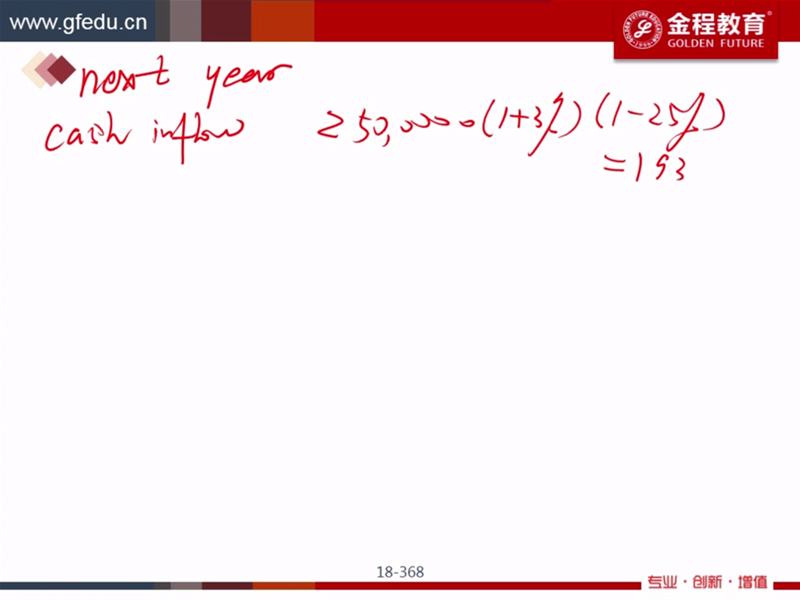 www.gfedu.cn
金程教育
GOLDEN FUTURE
next year
cash inflow 250,000·(1+3%)(1-25%)
=193
18-368
专业·创新·增值